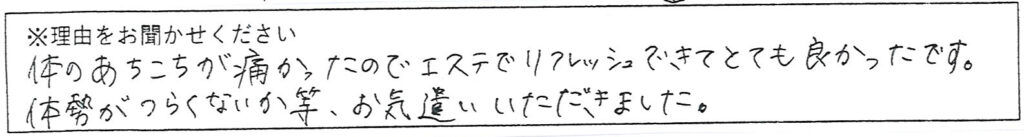 ※理由をお聞かせください
体のあちこちが痛かったのでエステでリフレッシュできてとても良かったです。
体勢がつらくないか等、お気遣いいただきました。